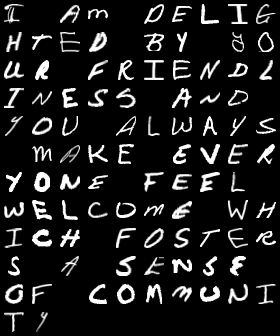 I AM DELIG
HTED BY YO
UR FRIENDL
INESS AND
YOU ALWAYS
MAKE EVER
YONE FEEL
WELCOME WH
ICH FOSTER
S A SENSE
OF COMMUNI
TY